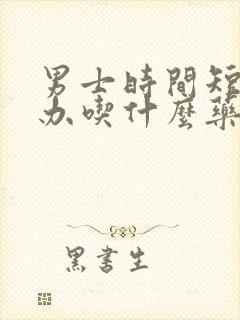 男士時間短
办喫什麼藥
黑書生